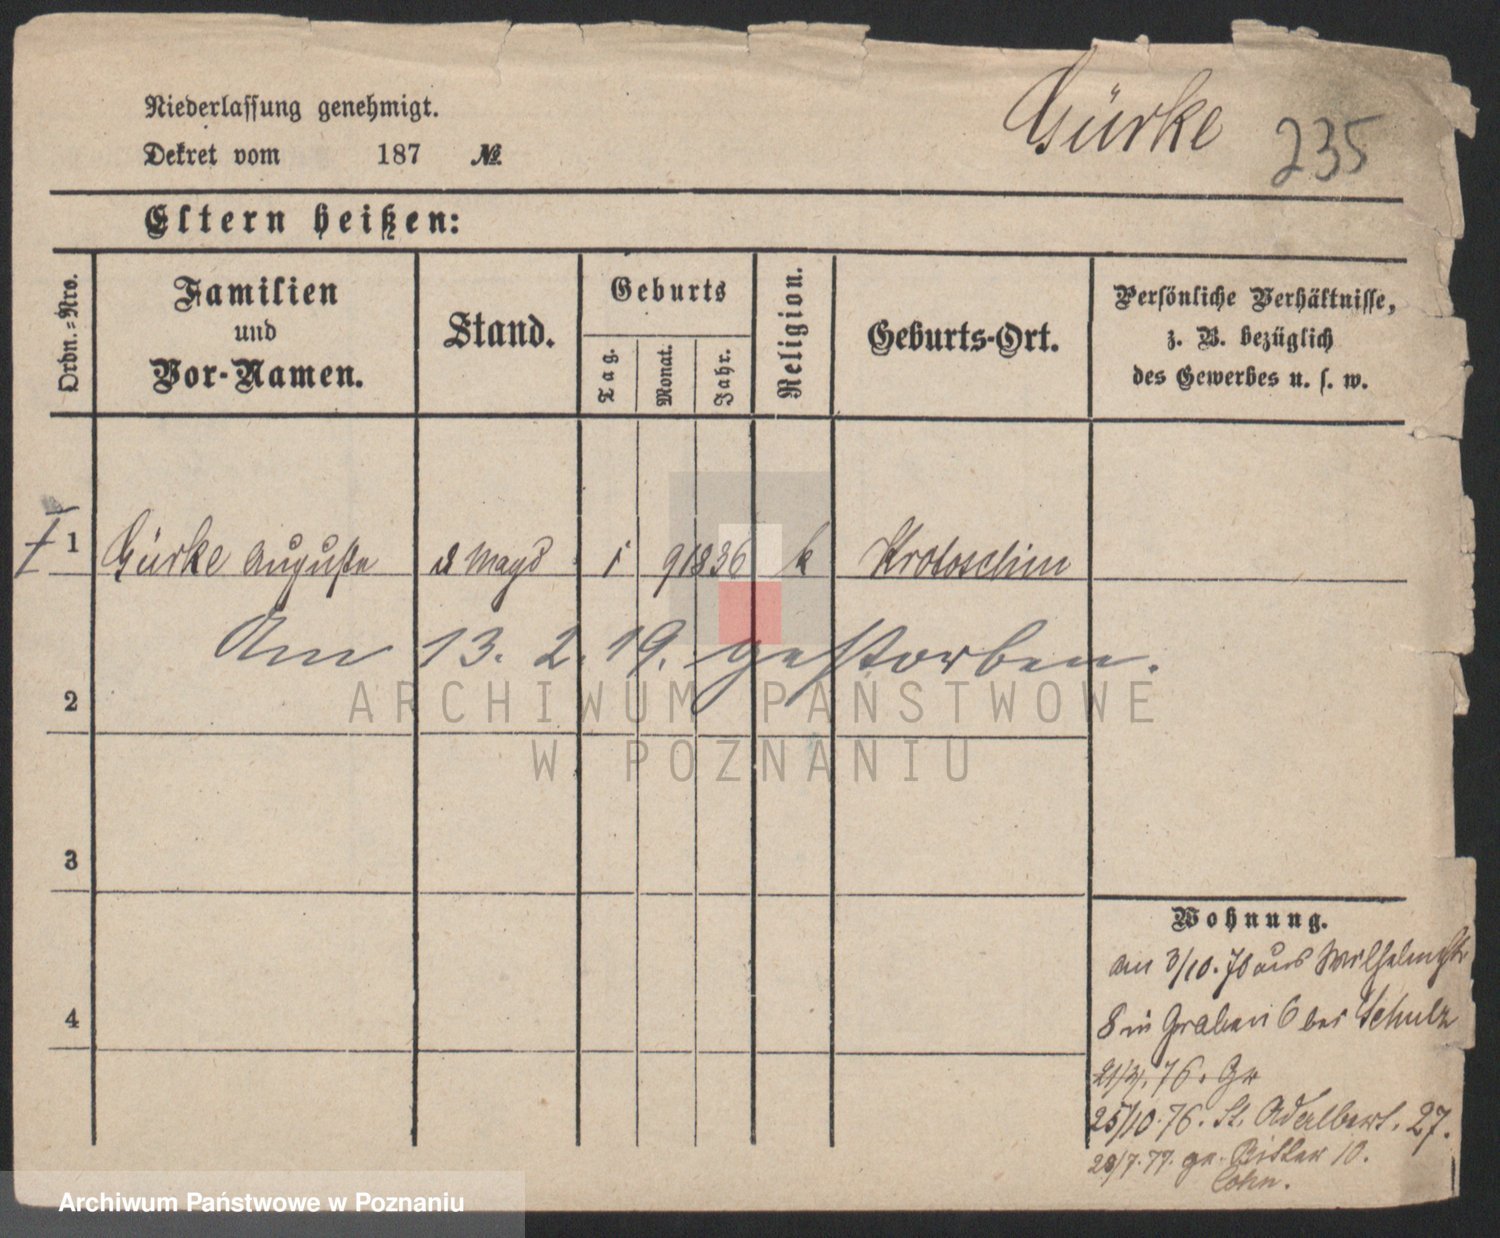 Niederlassung genehmigt.
Dekret vom 187 №
Gürke 235
Eltern heißen:
Ordn.-Nro.
Familien und Vor-Namen.
Stand.
Geburts
Tag.
Monat.
Jahr.
Religion.
Geburts-Ort.
Persönliche Verhältnisse,
z. B. bezüglich
des Gewerbes u. s. w.
1 Gürke Auguste d Magd 1 9 1836 k Krotoschin
Am 13. 2. 19. gestorben.
2
3
4
Wohnung.
am 3/10. 70 aus Wilhelmstr
8 in Graben 6 bei Schulz
76. Gr
25/10. 76. St. Adalbert. 27.
28/7. 77. gr. Ritter 10.
Cohn.
ARCHIWUM PAŃSTWOWE
W POZNANIU
Archiwum Państwowe w Poznaniu